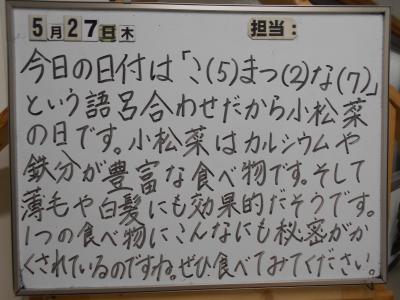 5月27日木 担当:
今日の日付は「こ(5)まつ(2)な(7)」
という語呂合わせだから小松菜
の日です。小松菜はカルシウムや
鉄分が豊富な食べ物です。そして
薄毛や白髪にも効果的だそうです。
1つの食べ物にこんなにも秘密がか
くされているのですね。ぜひ食べてみてください。